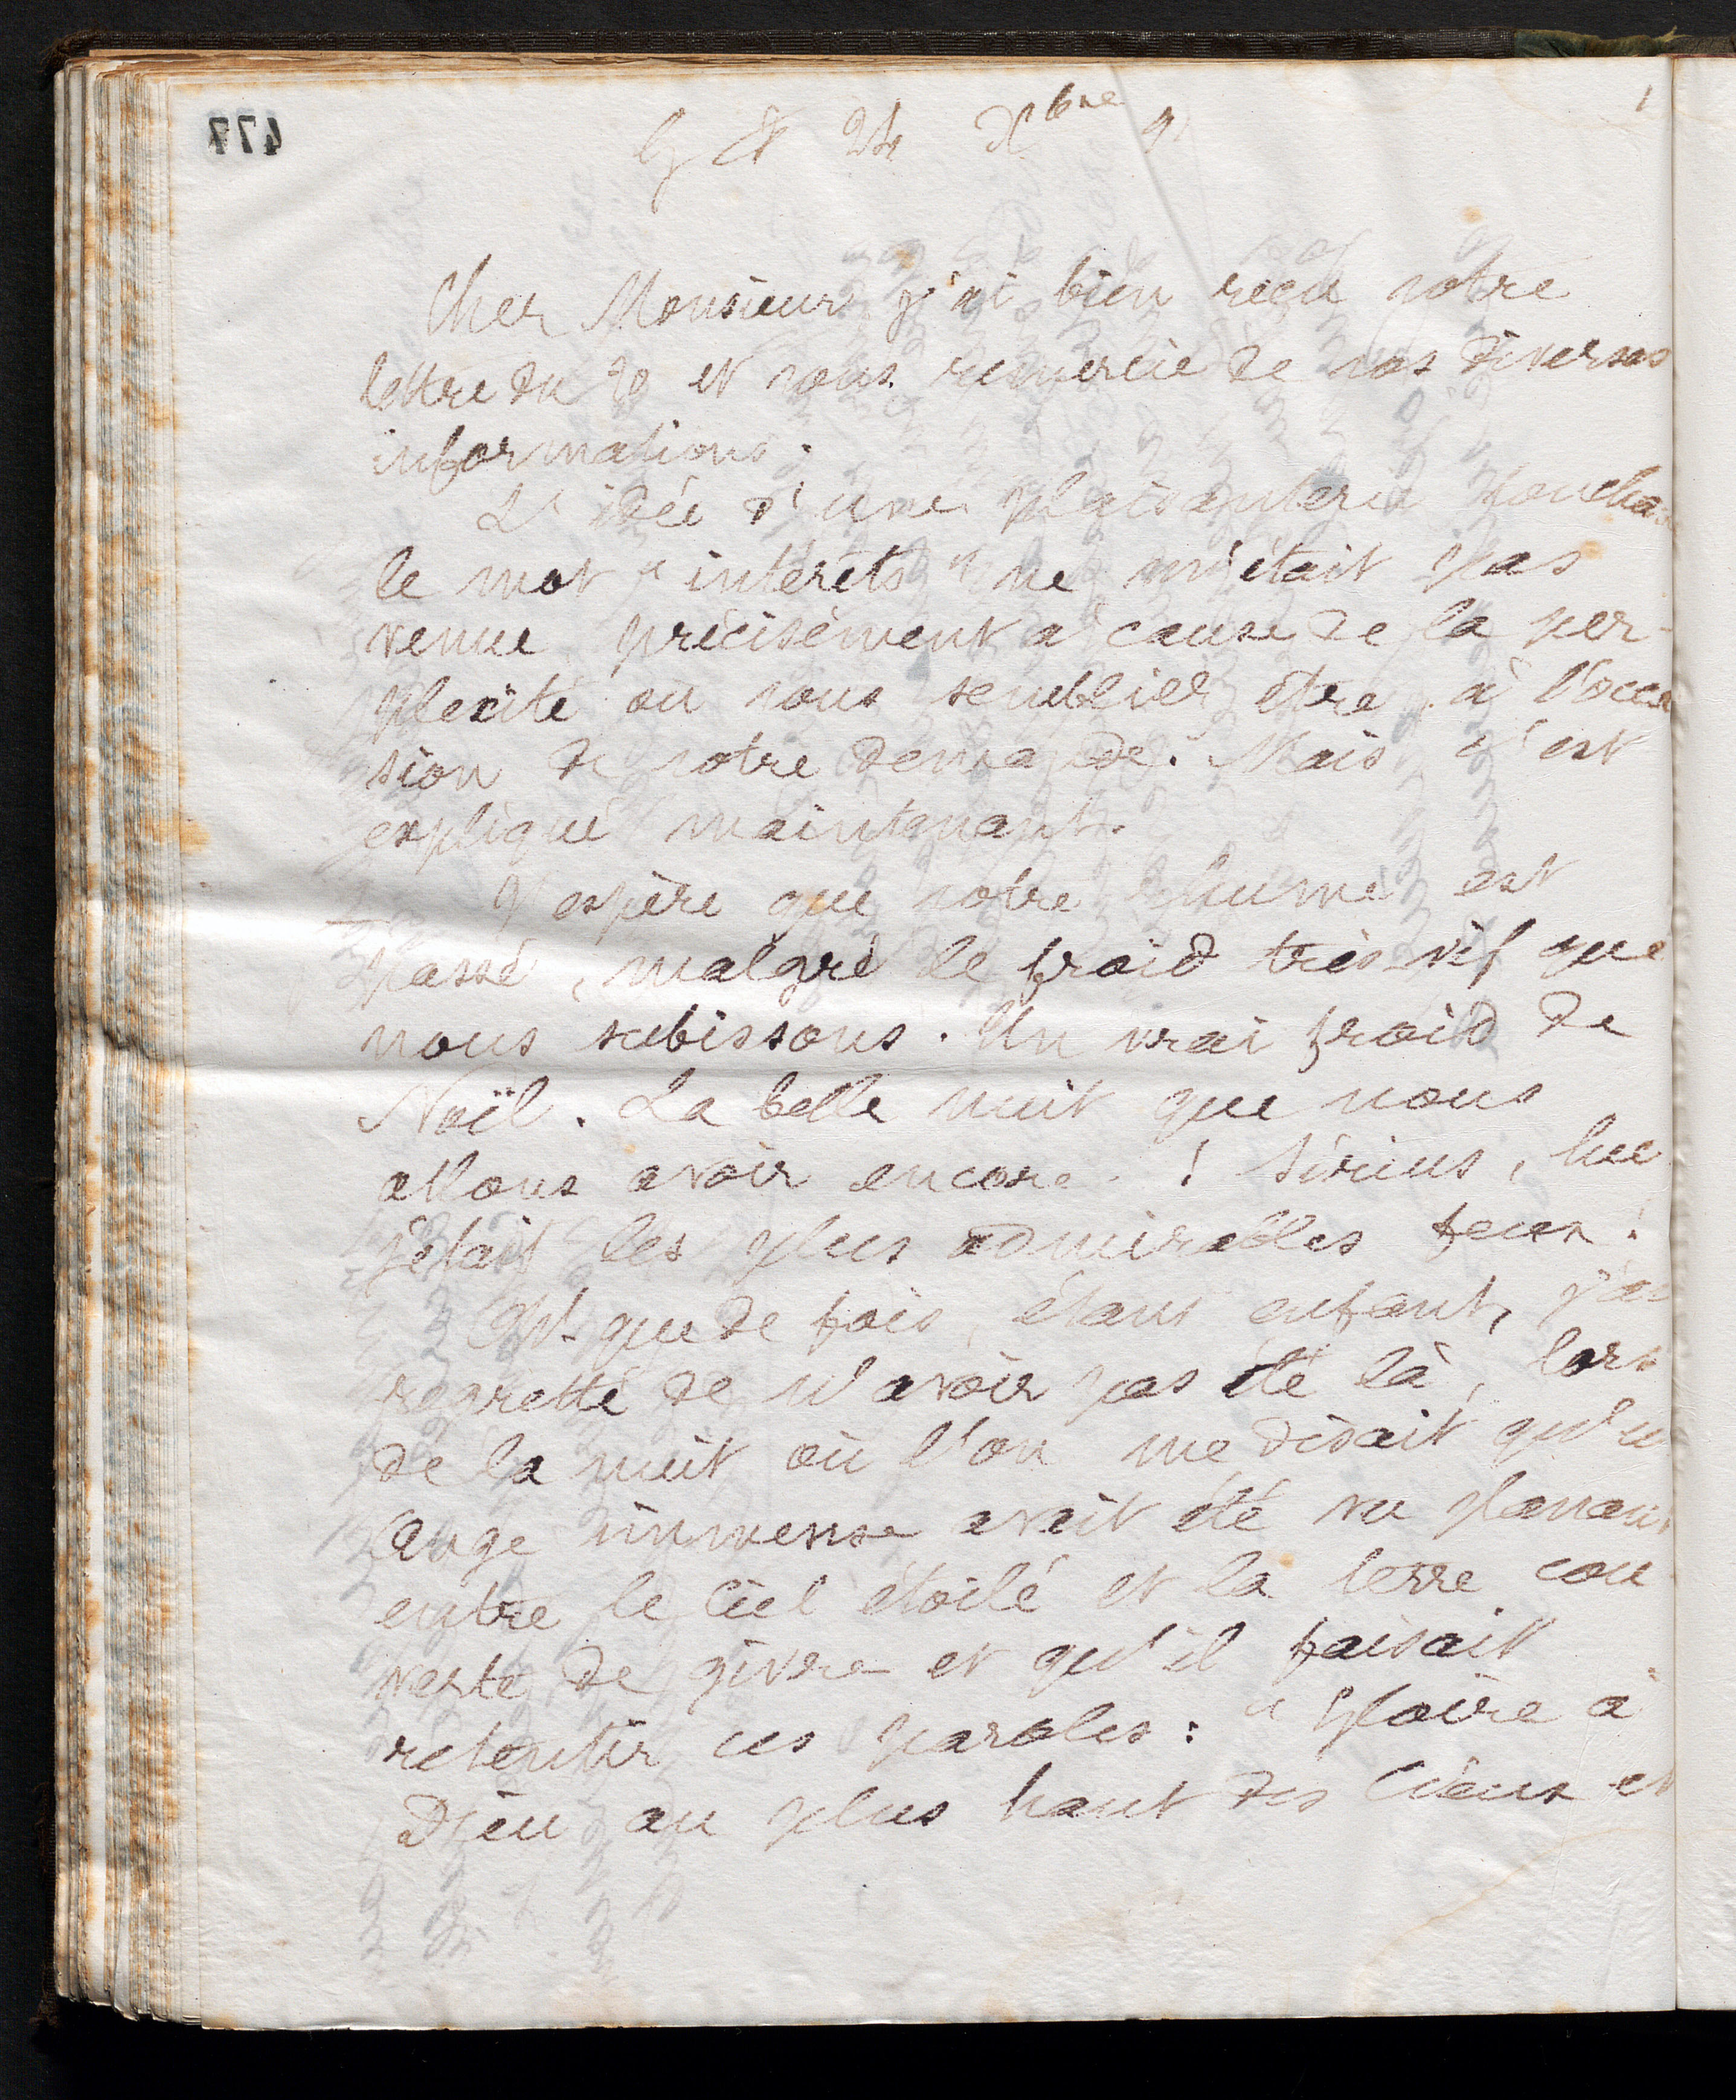 477
1
G et 24 Xbre 91
Cher Monsieur j'ai bien reçu votre
lettre du 20 et vous remercie de vos diverses
informations.
L'idée d'une plaisanterie toucha
le mot "intérêts" ne m'était pas
venue précisément à cause de la per-
plexité où vous sembliez être à l'occa
sion de votre demande. Mais c'est
expliqué maintenant.
J'espère que votre rhume est
passé, malgré le froid très-vif que
nous subissons. Un vrai froid de
Noïl. La belle nuit que nous
allons avoir encore ! Sirius, hier
jetait les plus admirables feux !
Oh que de fois, étant enfant, j'ai
regretté de n'avoir pas été là, lors
de la nuit où l'on me disait qu'u
ange immense avait été vu planant
entre le ciel étoilé et la terre cou
verte de givre et qu'il faisait
retentir ces paroles : "Gloire à
Dieu au plus haut des cieux et